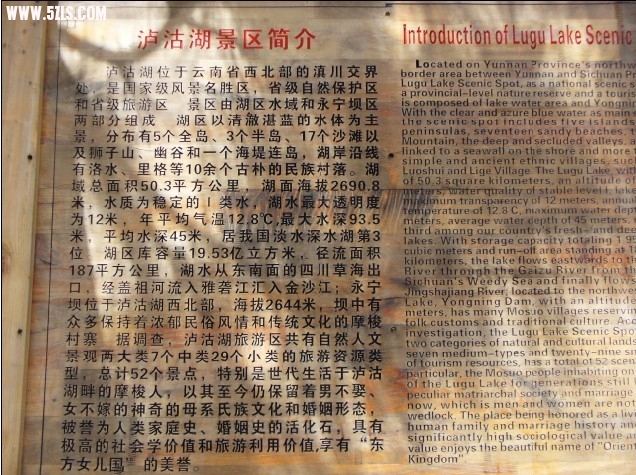 WWW.5ZLS.COM
泸沽湖景区简介
泸沽湖位于云南省西北部的滇川交界
处，是国家级风景名胜区，省级自然保护区
和省级旅游区 景区由湖区水域和永宁坝区
两部分组成 湖区以清澈湛蓝的水体为主
景，分布有5个全岛、3个半岛、17个沙滩以
及狮子山、幽谷和一个海堤连岛，湖岸沿线
有洛水、里格等10余个古朴的民族村落。湖
域总面积50.3平方公里，湖面海拔2690.8
米，水质为稳定的Ⅰ类水，湖水最大透明度
为12米，年平均气温12.8℃,最大水深93.5
米，平均水深45米，居我国淡水深水湖第3
位 湖区库容量19.53亿立方米，径流面积
187平方公里，湖水从东南面的四川草海出
口，经盖祖河流入雅砻江汇入金沙江；永宁
坝位于泸沽湖西北部，海拔2644米，坝中有
众多保持着浓郁民俗风情和传统文化的摩梭
村寨 据调查，泸沽湖旅游区共有自然人文
景观两大类7个中类29个小类的旅游资源类
型，总计52个景点，特别是世代生活于泸沽
湖畔的摩梭人，以其至今仍保留着男不娶、
女不嫁的神奇的母系氏族文化和婚姻形态，
被誉为人类家庭史、婚姻史的活化石，具有
极高的社会学价值和旅游利用价值,享有“东
方女儿国”的美誉。
Introduction of Lugu Lake Scenic
Located on Yunnan Province's northw
border area between Yunnan and Sichuan Pr
Lugu Lake Scenic Spot, as a national scenic s
a provincial-level nature reserve and a touris
is composed of lake water area and Yongni
With the clear and azure blue water as main
the scenic spot includes five islands
peninsulas, seventeen sandy beaches, th
Mountain, the deep and secluded valleys, a
linked to a seawall on the shore and more t
simple and ancient ethnic villages, suc
Luoshui and Lige Village. The Lugu Lake, with
of 50.3 square kilometers, an altitude of
meters, water quality of stable I level, lake
maximum transparency of 12 meters, annual
temperature of 12.8 C, maximum water dep
meters, average water depth of 45 meters,
third among our country's fresh-and dee
lakes. With storage capacity totaling 1.95
cubic meters and run-off area standing at 1
kilometers, the lake flows eastwards to th
River through the Gaizu River from th
Sichuan's Weedy Sea and finally flows
Jingshajiang River; located to the northwe
Lake, Yongning Dam, with an altitude
meters, has many Mosuo villages reservin
folk customs and traditional culture. Acco
investigation, the Lugu Lake Scenic Spo
two categories of natural and cultural lands
seven medium-types and twenty-nine s
of tourism resources, has a total of 52 scen
particular, the Mosuo people inhabiting on
of the Lugu Lake for generations still
peculiar matriarchal society and marriage
now, which is men and women are not
wedlock. The place being honored as a liv
human family and marriage history and
significantly high sociological value an
value enjoys the beautiful name of "Orient
Kingdom".